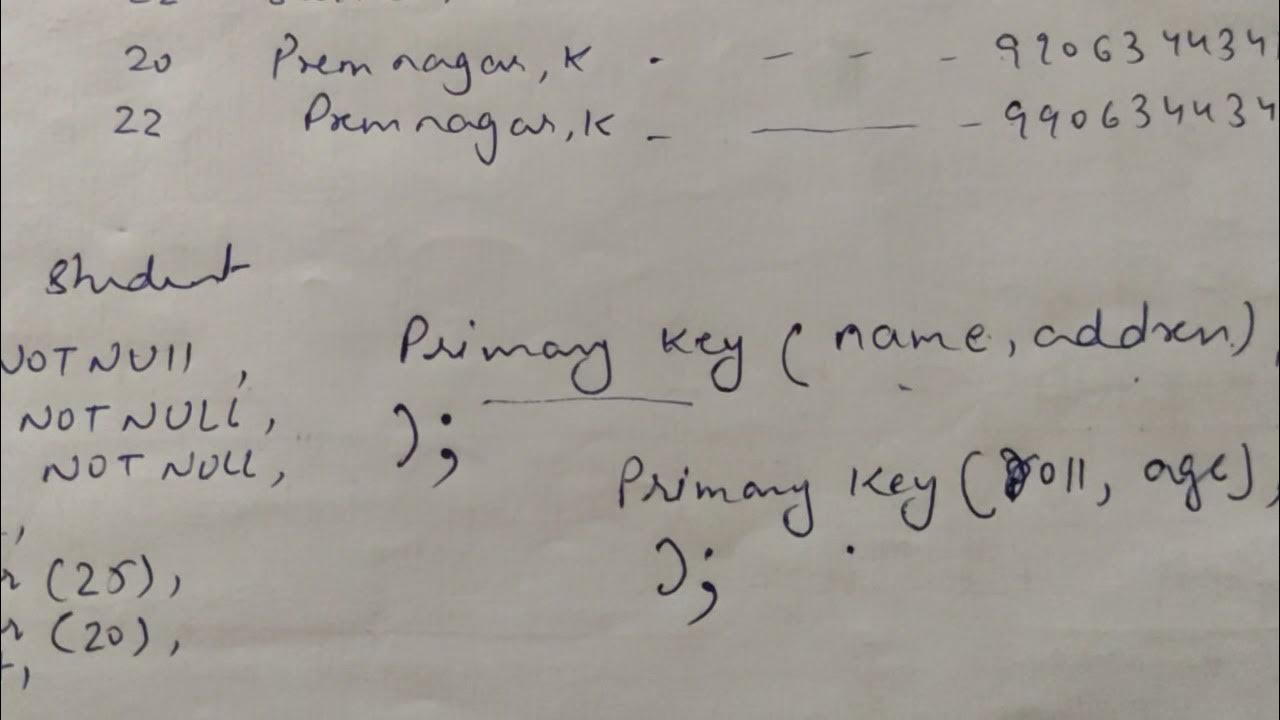 20 Premnagar, K . - - - 990634434
22 Premnagar, K - — - 990634434
Student
NOT NUll ,
NOT NULL ,
NOT NULL ,
(25) ,
(20) ,
Primary key ( name, address)
);
Primary key ( roll, age) ,
);